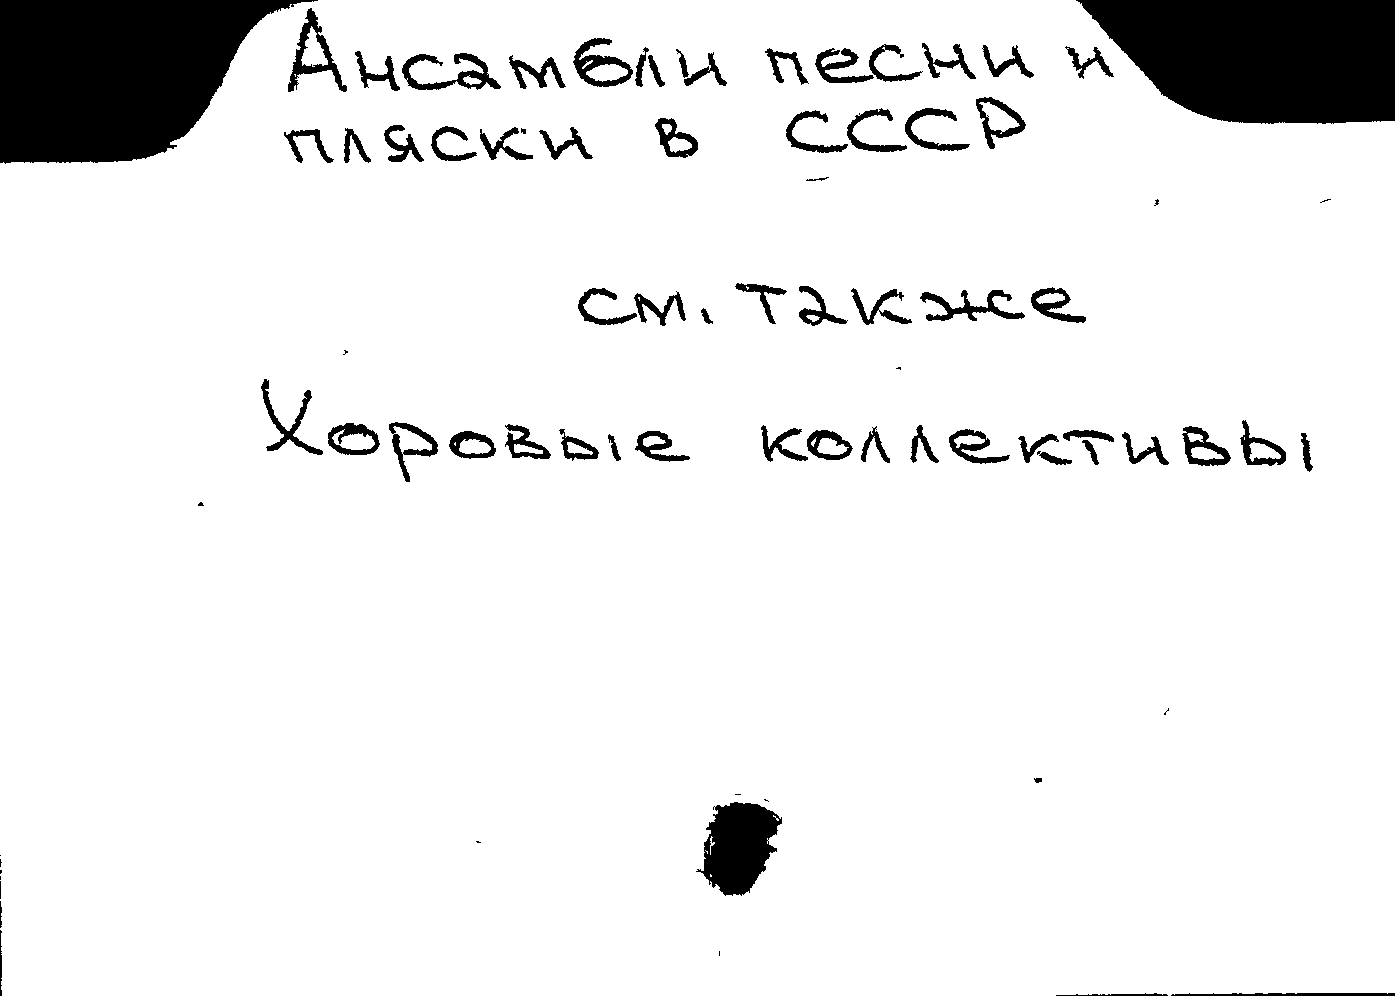 Ансамбли песни и
пляски в СССР
см. также
Хоровые коллективы